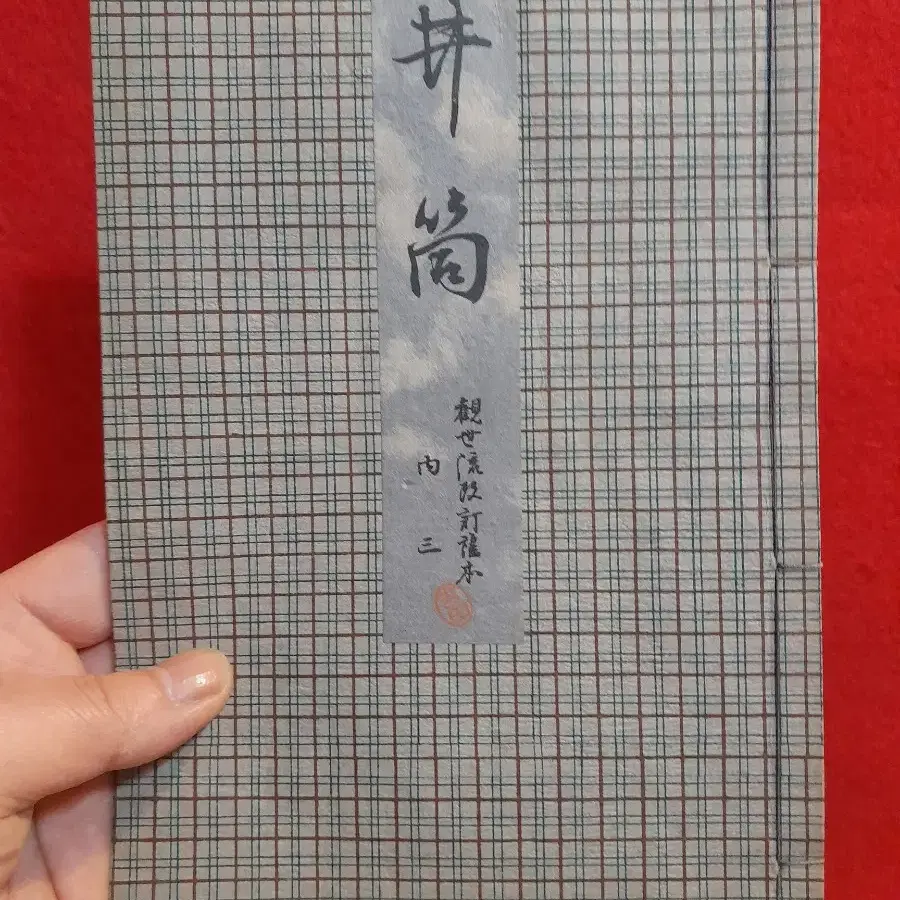 井筒
觀世流改訂謡本
内三